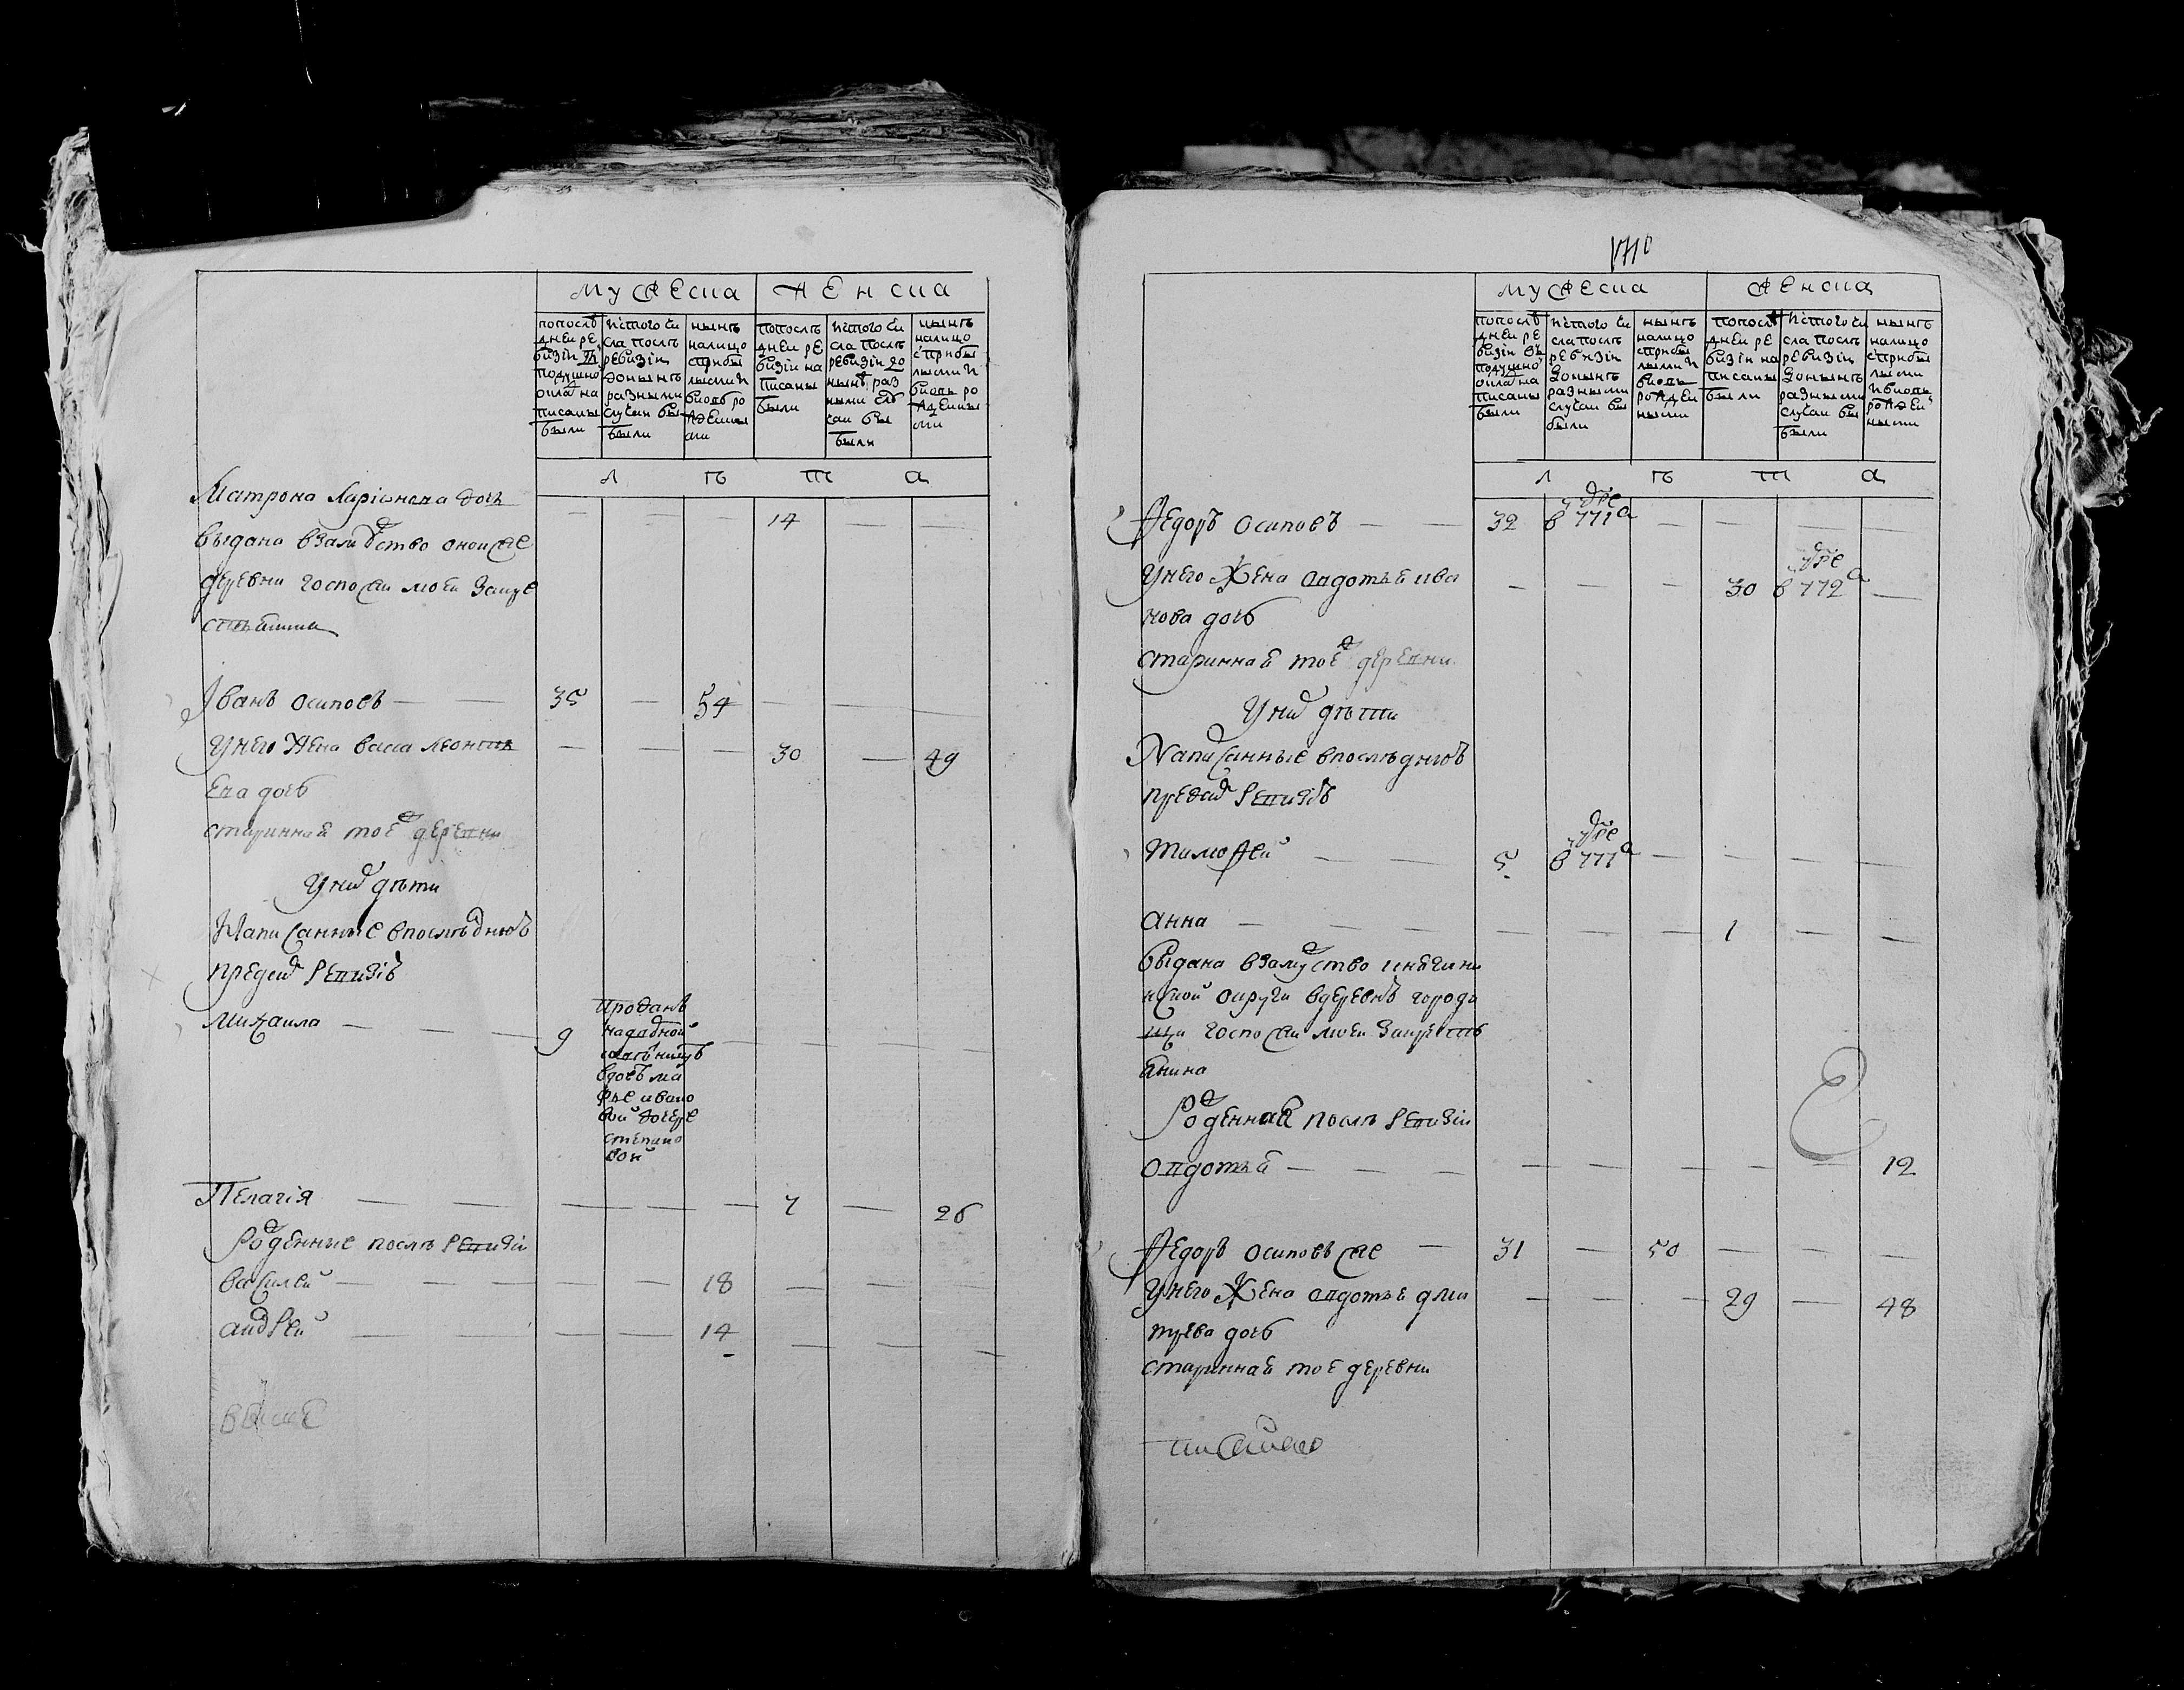 мужеска женска
попослѣ дней ре визiи въ подушной окладъ на писаны были
исто го чи сла послѣ ревизiи донынѣ разными случаи вы были
нынѣ налицо сприбы лыми и вновь ро жденны ми
попослѣ дней ре визiи на писаны были
исто го чи сла послѣ ревизiи до нынѣ раз ными слу чаи вы были
нынѣ налицо сприбы лыми и вновь ро жденны ми
л ѣ т а
Матрона Ларiонова дочь 14
выдана взамужство оной же
деревни госпожи моей за кре
стьянина
Iванъ осиповъ 35 54
унего жена васа леонтье 30 49
ва дочь
стариннаѧ тоеж деревни
уних дѣти
Написанные впослѣднюѣ
пред сим ревизiѣ
михаила 9
проданъ
вдовѣ ма
рье ивано
вой дочере
степано
вой
Пелагiя 7 26
Рожденные послѣ ревизiи
василей 18
андрей 14
мужеска женска
попослѣ дней ре визiи въ подушной окладъ на писаны были
исто го чи сла послѣ ревизiи донынѣ разными случаи вы были
нынѣ налицо сприбы лыми и вновь рожден ными
попослѣ дней ре визiи на писаны были
исто го чи сла послѣ ревизiи донынѣ разными случаи вы были
нынѣ налицо сприбы лыми и вновь рожден ными
л ѣ т а
Ѳедоръ осиповъ 32 умре в 771 а
унего жена овдотьѧ ива 30 умре в 772 а
нова дочь
стариннаѧ тоеж деревни
уних дѣти
Написанные впослѣднюѣ
пред сим ревизiѣ
тимоѳей 5 умре в 771 а
анна 1
выдана взамужство княгини
нской округи вдеревнѣ городи
щи госпожи моей за кресть
ѧнина
Рожденнаѧ послѣ ревизiи
овдотьѧ 12
Ѳедоръ осиповъ же 31 50
унего жена овдотьѧ дми 29 48
трева дочь
стариннаѧ тое деревни